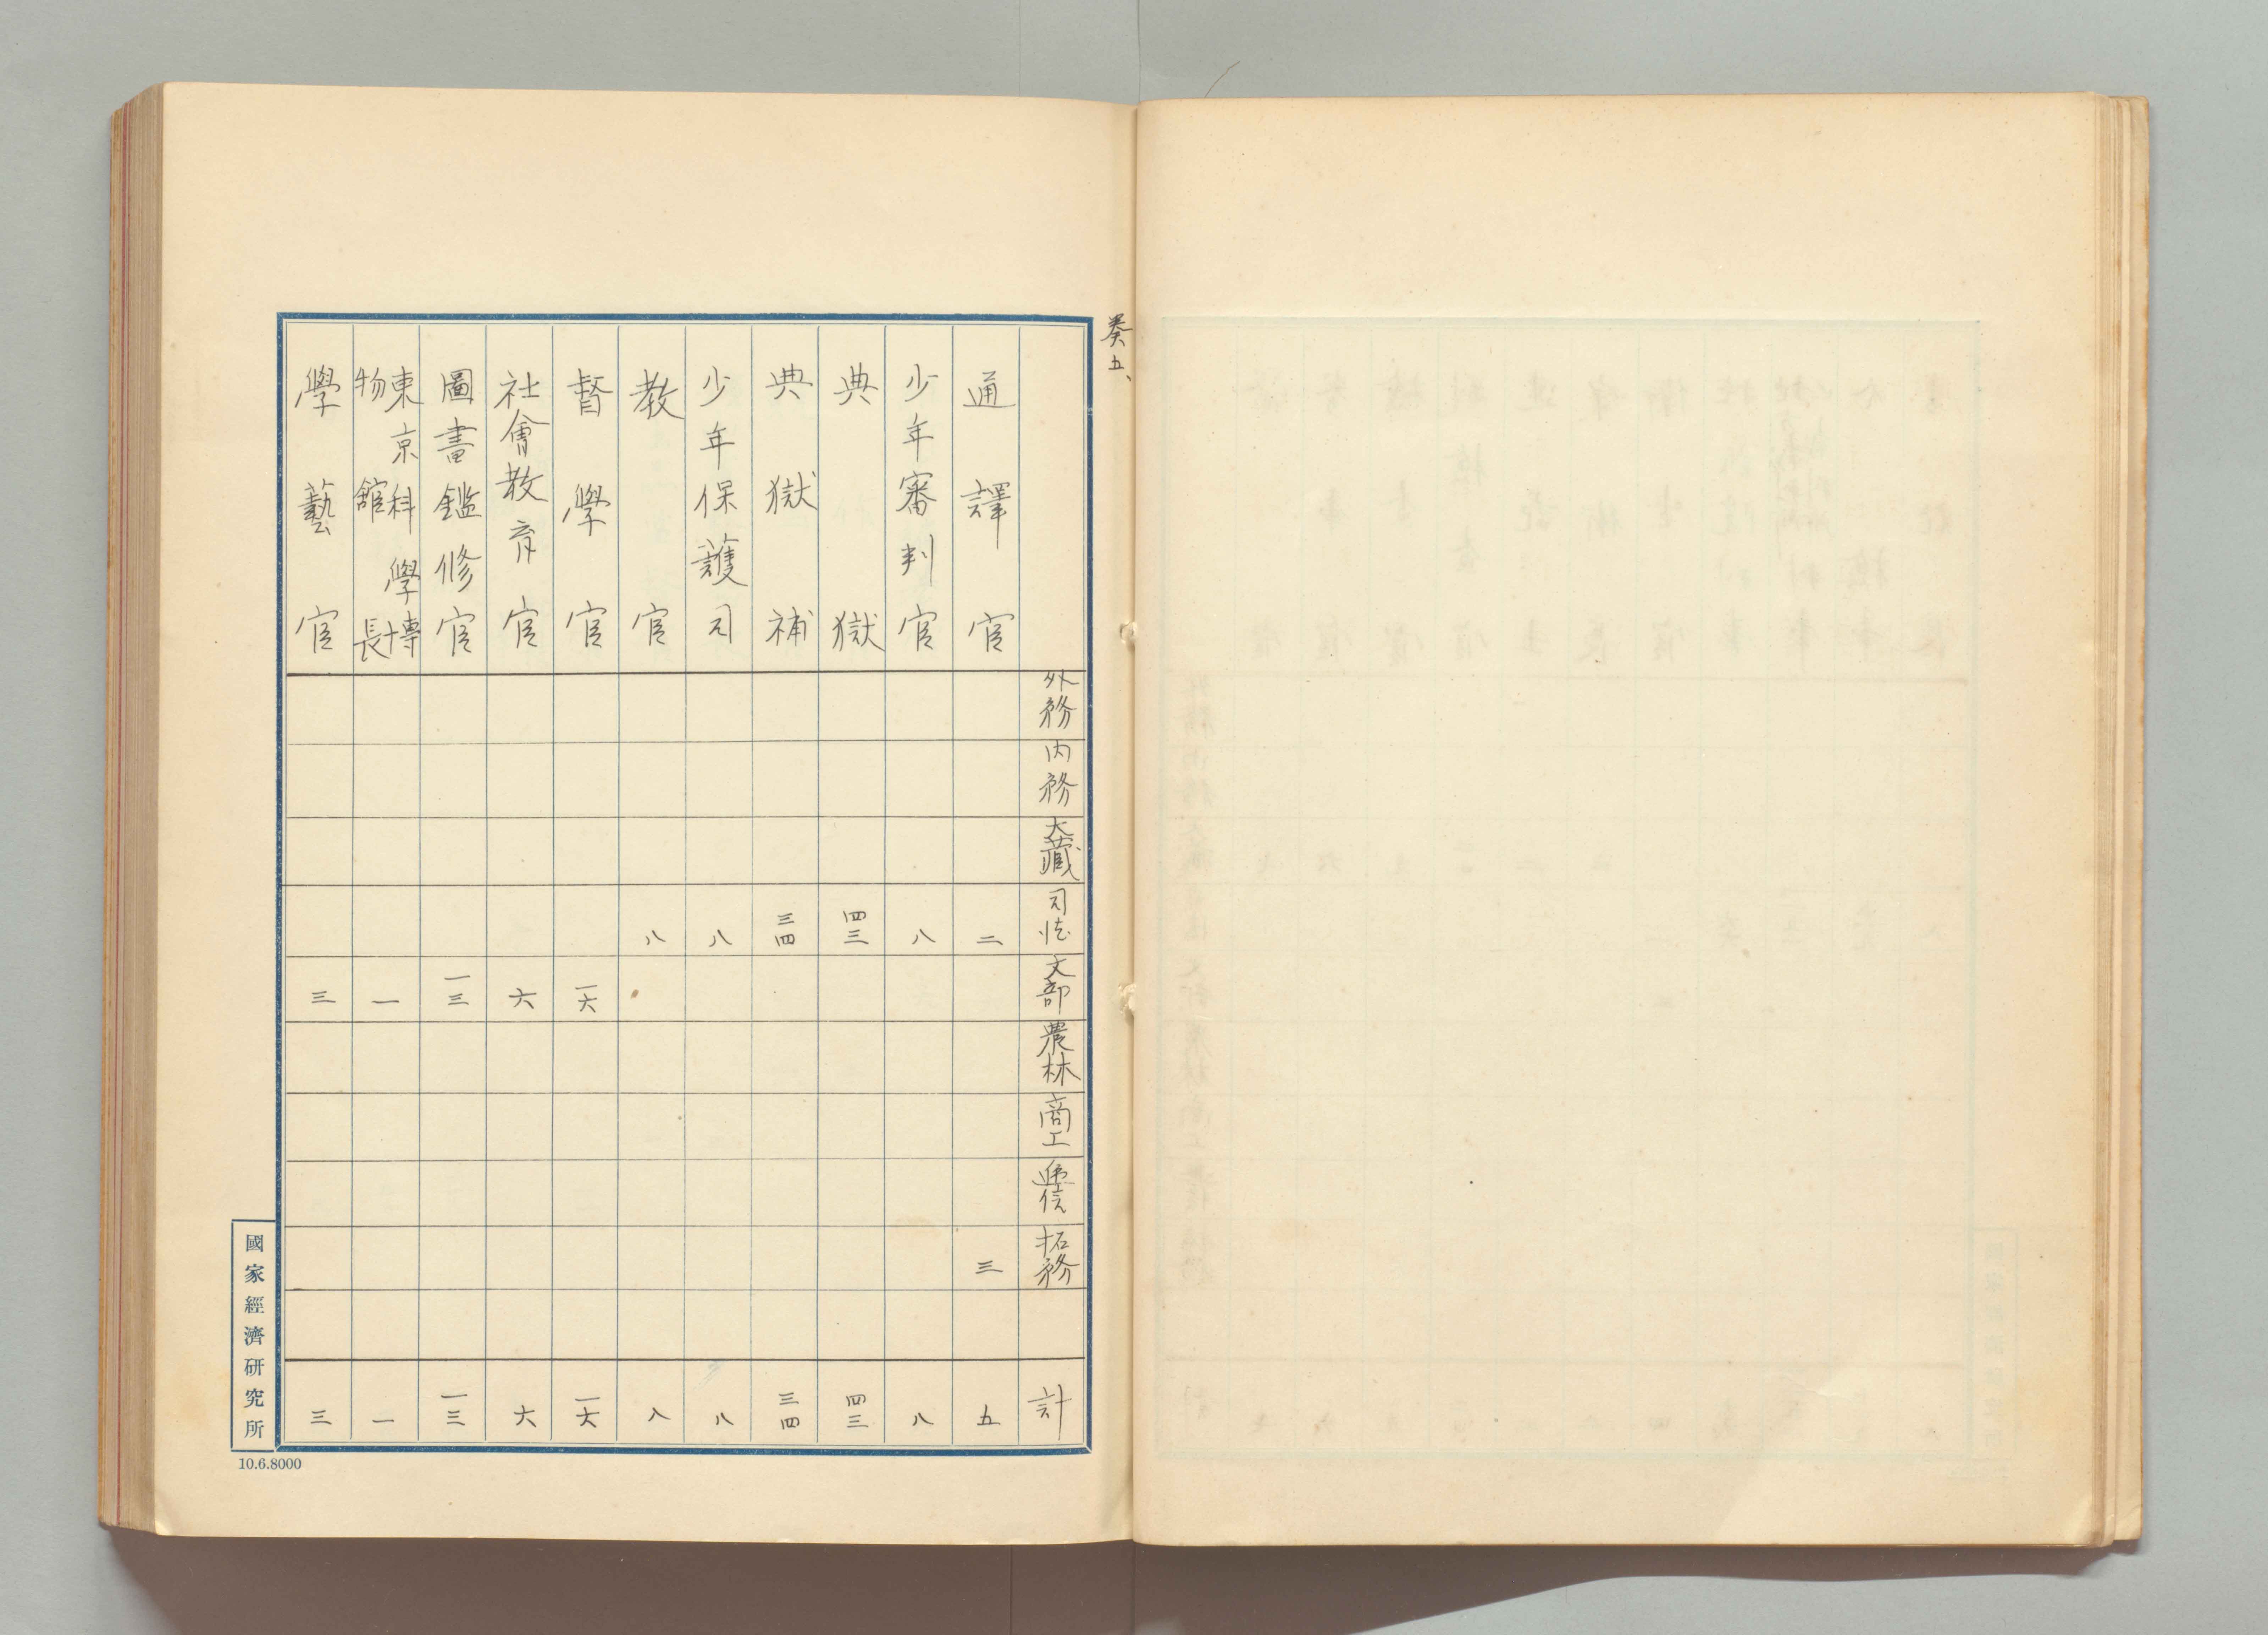 奏五、
外務 内務 大藏 司法 文部 農林 商工 逓信 拓務 計
通譯官 二 三 五
少年審判官 八 八
典獄 四三 四三
典獄補 三四 三四
少年保護司 八 八
教官 八 八
督學官 一六 一六
社會教育官 六 六
圖書鑑修官 一三 一三
東京科學博物館長 一 一
學藝官 三 三
國家經濟研究所
10.6.8000